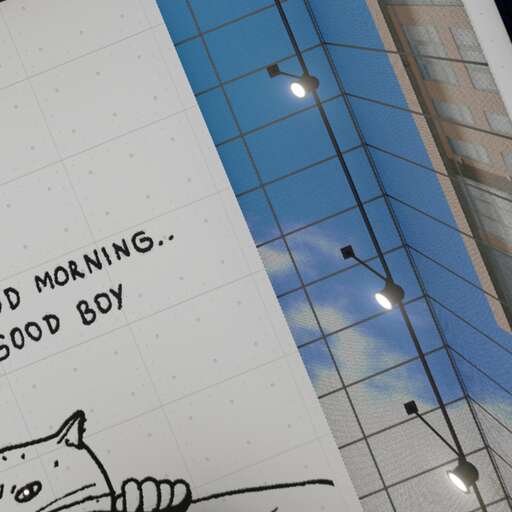 MORNING..
GOOD BOY